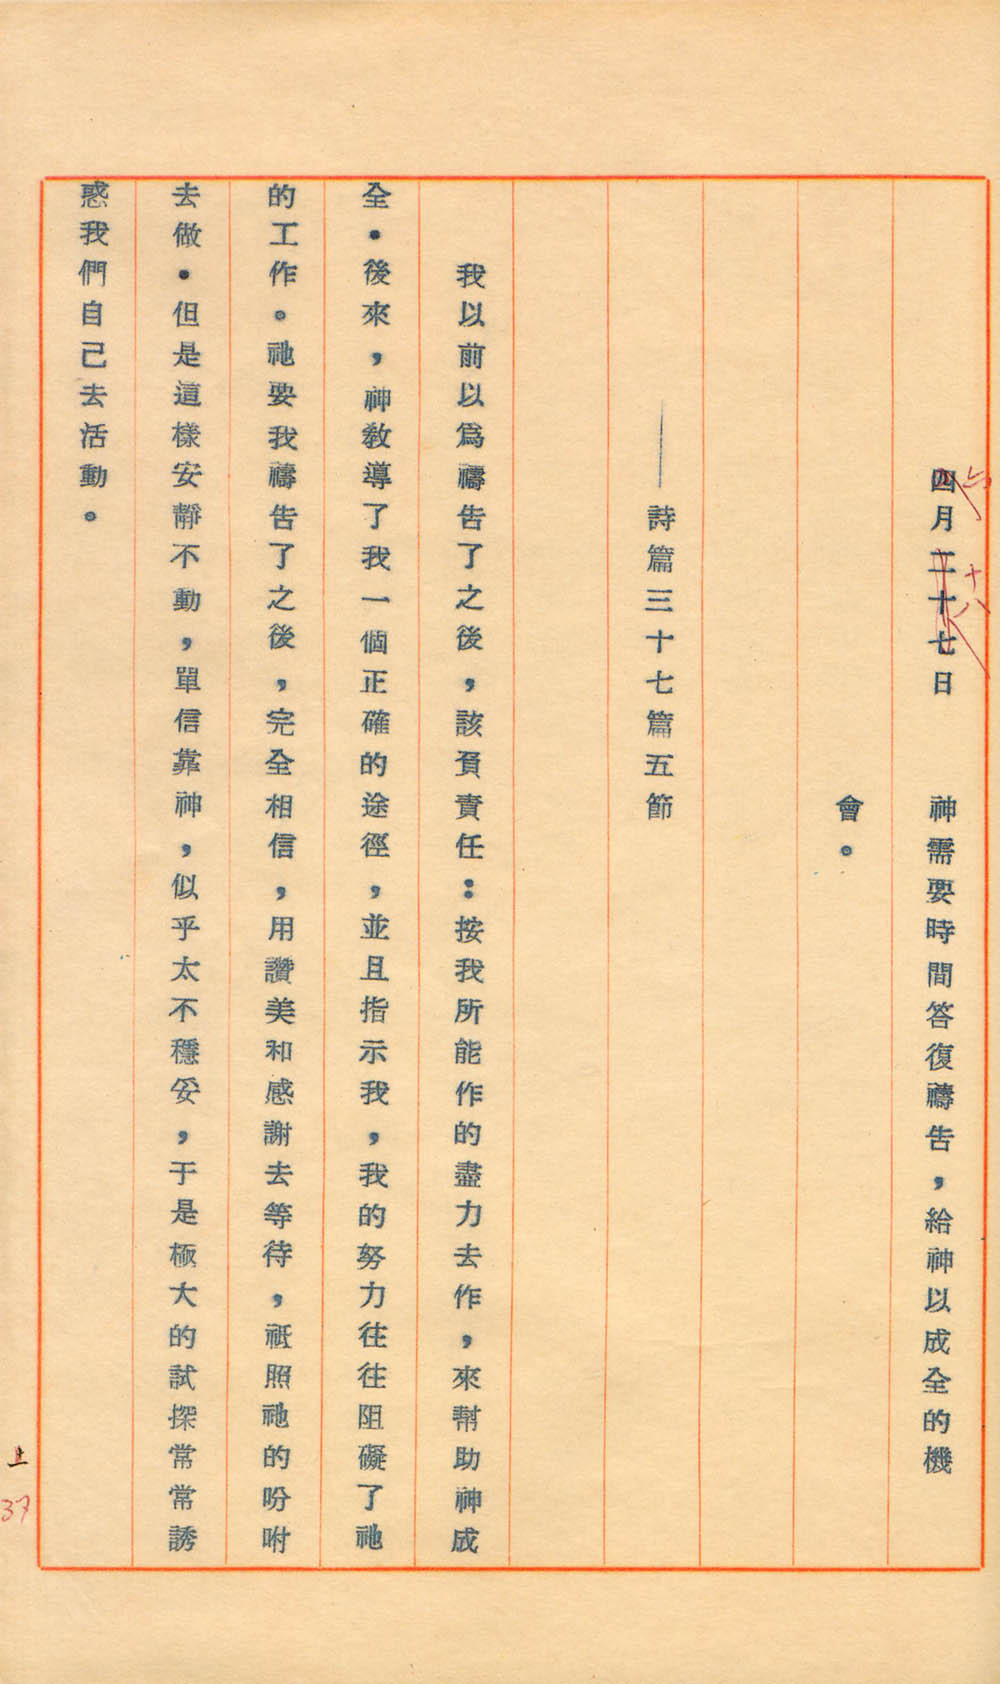 四月二十七日　　神需要時間答復禱告，給神以成全的機
六　十八
會。
——詩篇三十七篇五節
我以前以爲禱告了之後，該負責任：按我所能作的盡力去作，來幫助神成
全．後來，神教導了我一個正確的途徑，並且指示我，我的努力往往阻礙了祂
的工作。祂要我禱告了之後，完全相信，用讚美和感謝去等待，祗照祂的吩咐
去做．但是這樣安靜不動，單信靠神，似乎太不穩妥，于是極大的試探常常誘
惑我們自己去活動。
上
37